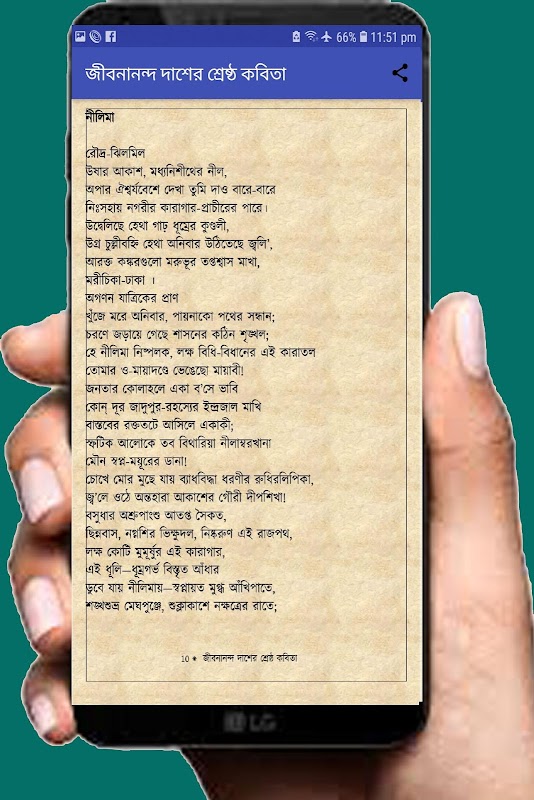 66% 11:51 pm
জীবনানন্দ দাশের শ্রেষ্ঠ কবিতা
নীলিমা
রৌদ্র-ঝিলমিল
উষার আকাশ, মধ্যনিশীথের নীল,
অপার ঐশ্বর্যবেশে দেখা তুমি দাও বারে-বারে
নিঃসহায় নগরীর কারাগার-প্রাচীরের পারে।
উদ্বেলিছে হেথা গাঢ় ধূম্রের কুণ্ডলী,
উগ্র চুল্লীবহ্নি হেথা অনিবার উঠিতেছে জ্বলি',
আরক্ত কঙ্করগুলো মরুভূর তপ্তশ্বাস মাখা,
মরীচিকা-ঢাকা ।
অগণন যাত্রিকের প্রাণ
খুঁজে মরে অনিবার, পায়নাকো পথের সন্ধান;
চরণে জড়ায়ে গেছে শাসনের কঠিন শৃঙ্খল;
হে নীলিমা নিষ্পলক, লক্ষ বিধি-বিধানের এই কারাতল
তোমার ও-মায়াদণ্ডে ভেঙেছো মায়াবী!
জনতার কোলাহলে একা ব'সে ভাবি
কোন্ দূর জাদুপুর-রহস্যের ইন্দ্রজাল মাখি
বাস্তবের রক্ততটে আসিলে একাকী;
স্ফটিক আলোকে তব বিথারিয়া নীলাম্বরখানা
মৌন স্বপ্ন-ময়ূরের ডানা!
চোখে মোর মুছে যায় ব্যাধবিদ্ধা ধরণীর রুধিরলিপিকা,
জ্ব'লে ওঠে অন্তহারা আকাশের গৌরী দীপশিখা!
বসুধার অশ্রুপাংশু আতপ্ত সৈকত,
ছিন্নবাস, নগ্নশির ভিক্ষুদল, নিষ্করুণ এই রাজপথ,
লক্ষ কোটি মুমূর্ষুর এই কারাগার,
এই ধূলি—ধূম্রগর্ভ বিস্তৃত আঁধার
ডুবে যায় নীলিমায়—স্বপ্নায়ত মুগ্ধ আঁখিপাতে,
শঙ্খশুভ্র মেঘপুঞ্জে, শুক্লাকাশে নক্ষত্রের রাতে;
10 ● জীবনানন্দ দাশের শ্রেষ্ঠ কবিতা
LG